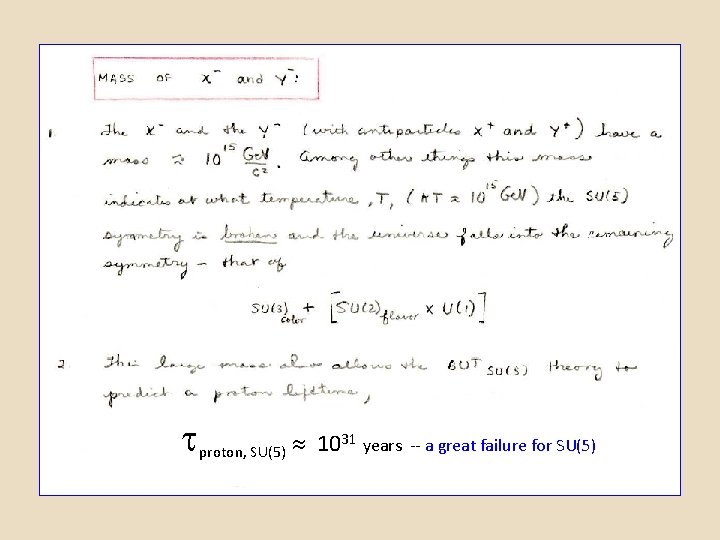 MASS OF X⁻ and Y⁻:
1. The X⁻ and the Y⁻ (with antiparticles X⁺ and Y⁺) have a
mass ≈ 10¹⁵ GeV/c². Among other things this mass
indicates at what temperature, T, (kT ≈ 10¹⁵ GeV) the SU(5)
symmetry is broken and the universe falls into the remaining
symmetry – that of
SU(3)color + [SU(2)flavor x U(1)]
2 This large mass also allows the GUT SU(5) theory to
predict a proton lifetime,
τproton, SU(5) ≈ 10³¹ years -- a great failure for SU(5)